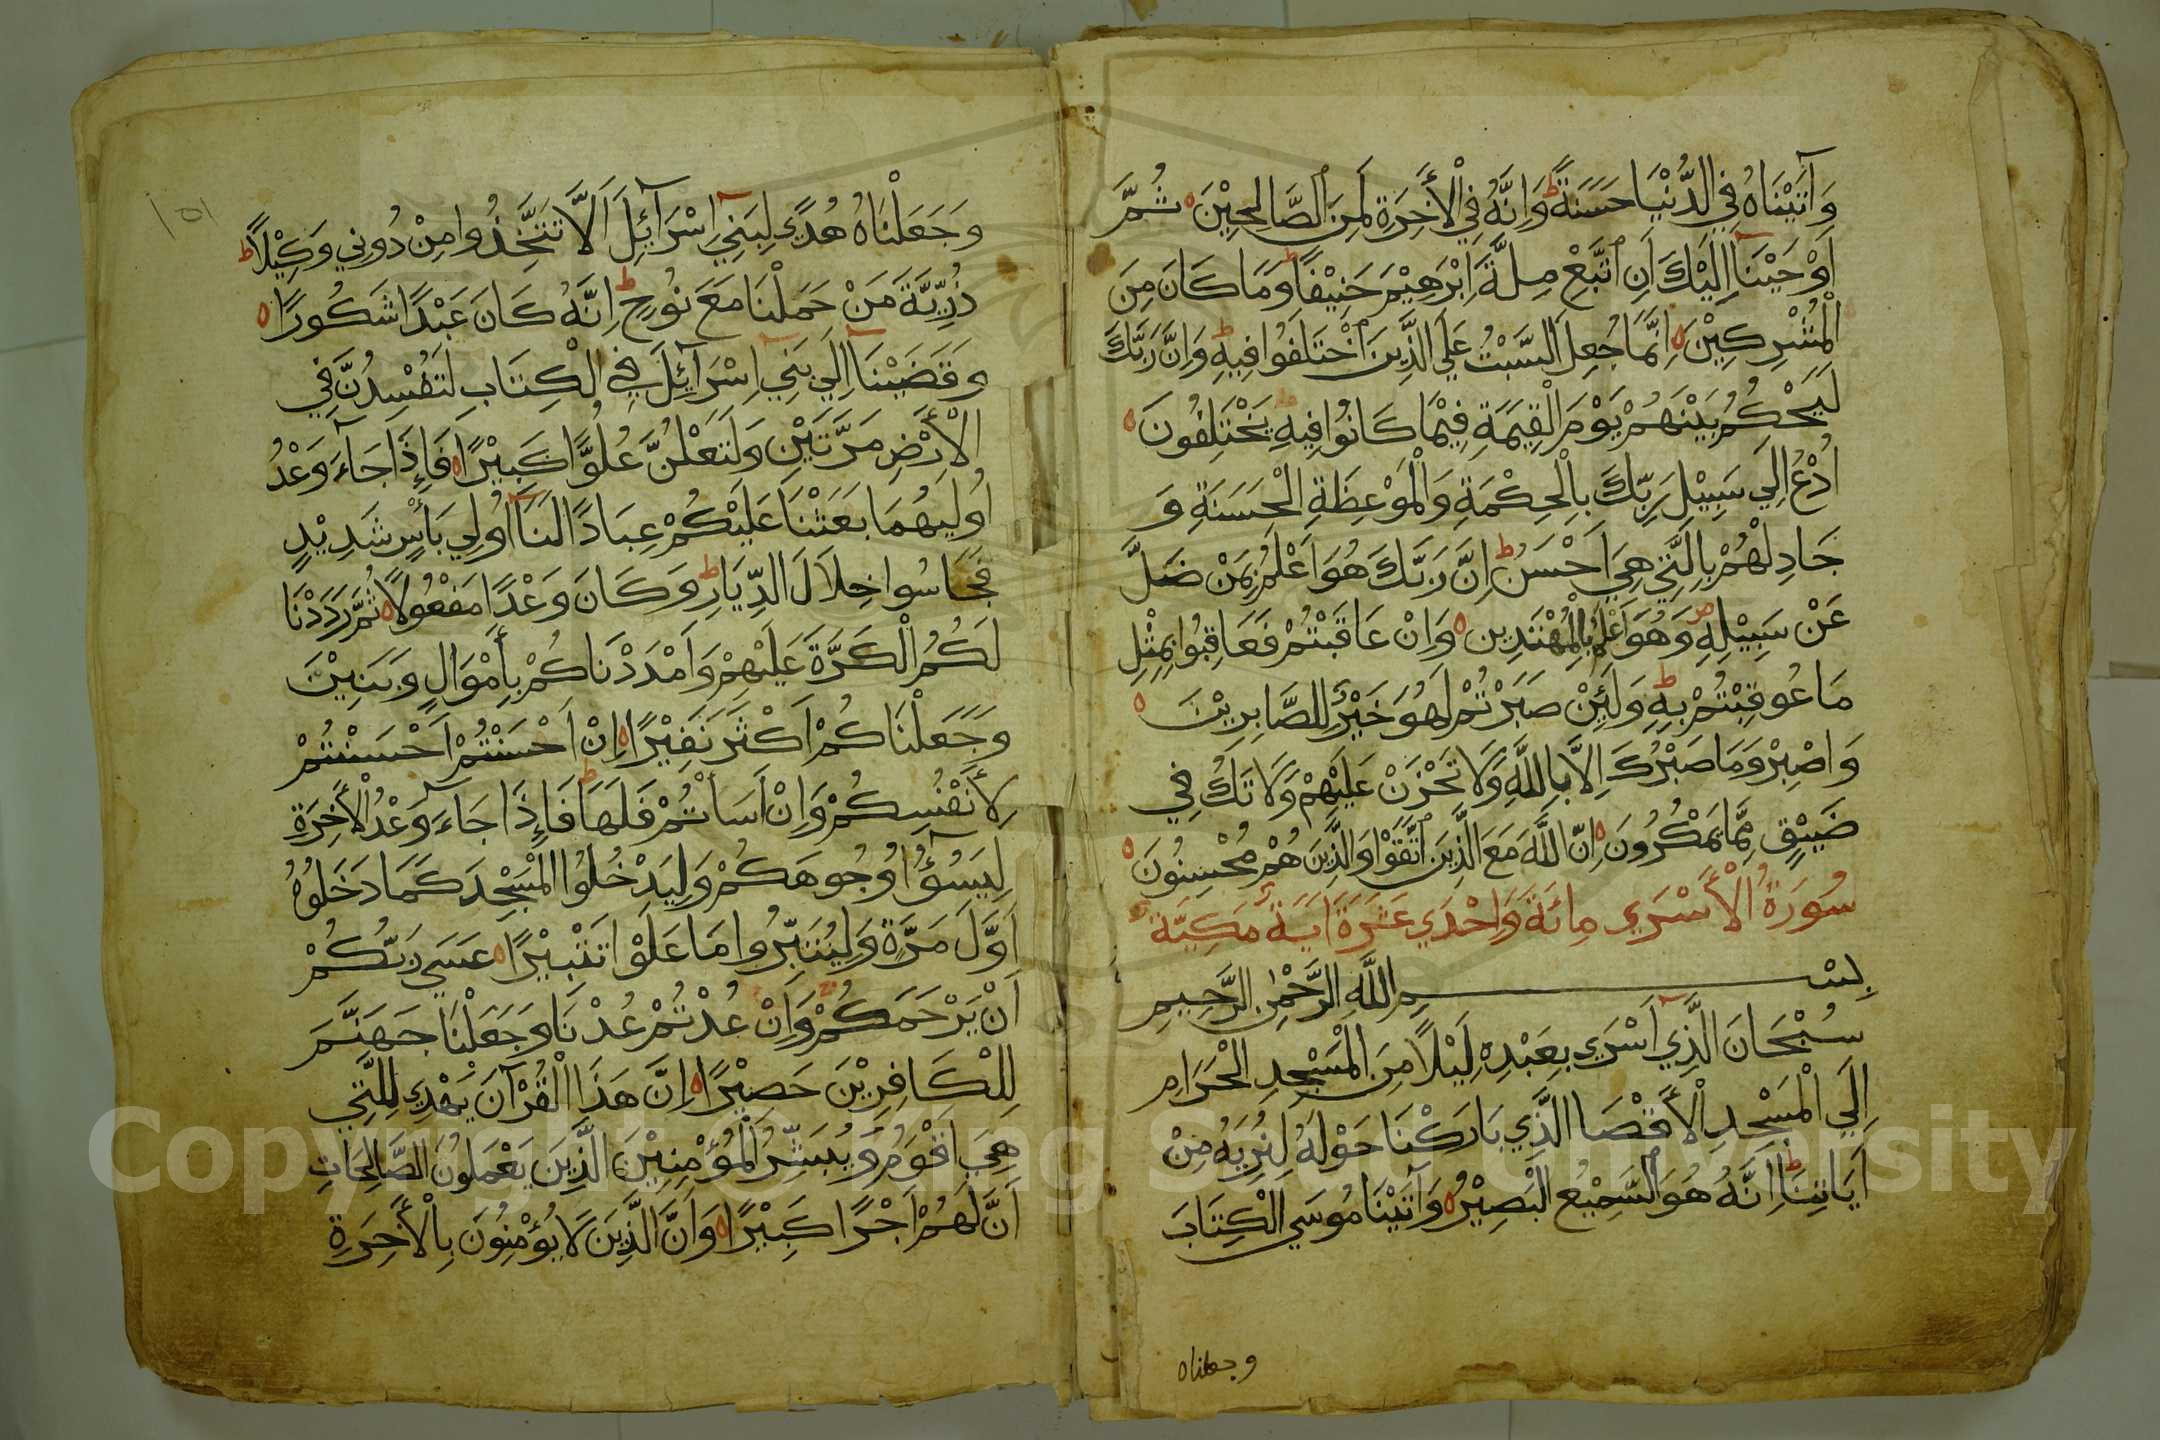 وَآتَيْنَاهُ فِي الدُّنْيَا حَسَنَةً ط وَاِنَّهُ فِي الْأَخِرَةِ لَمِنَ الصَّالِحِيْنَ ه ثُمَّ
اَوْحَيْنَآ اِلَيْكَ اَنِ اتَّبِعْ مِلَّةَ اِبْرٰهِيْمَ حَنِيْفًا ط وَمَا كَانَ مِنَ
الْمُشْرِكِيْنَ ه اِنَّمَا جُعِلَ السَّبْتُ عَلَي الَّذِينَ اخْتَلَفُوا فِيهِ ط وَاِنَّ رَبَّكَ
لَيَحْكُمُ بَيْنَهُمْ يَوْمَ الْقِيَمَةِ فِيْمَا كَانُوا فِيهِ يَخْتَلِفُونَ ه
اُدْعُ اِلَي سَبِيْلِ رَبِّكَ بِالْحِكْمَةِ وَالْمَوْعِظَةِ الْحَسَنَةِ وَ
جَادِلْهُمْ بِالَّتِي هِيَ اَحْسَنُ ط اِنَّ رَبَّكَ هُوَ اَعْلَمُ بِمَنْ ضَلَّ
عَنْ سَبِيْلِهِ وَهُوَ اَعْلَمُ بِالْمُهْتَدِين ه وَاِنْ عَاقَبْتُمْ فَعَاقِبُوا بِمِثْلِ
مَا عُوقِبْتُمْ بِهِ ط وَلَئِنْ صَبَرْتُمْ لَهُوَ خَيْرٌ لِلصَّابِرِيْنَ ه
وَاصْبِرْ وَمَا صَبْرُكَ اِلَّا بِاللَّهِ وَلَا تَحْزَنْ عَلَيْهِمْ وَلَا تَكُ فِي
ضَيْقٍ مِمَّا يَمْكُرُونَ ه اِنَّ اللَّهَ مَعَ الَّذِينَ اتَّقَوْا وَالَّذِينَ هُمْ مُحْسِنُونَ ه
سُورَةُ الْأَسْرَي مِائَةَ وَاِحْدَي عَشَرَةَ اَيَةً مَكِيَّة
بِسْمِ اللَّهِ الرَّحْمٰنِ الرَّحِيمِ
سُبْحَانَ الَّذِي اَسْرَي بِعَبْدِهِ لَيْلًا مِنَ الْمَسْجِدِ الْحَرَامِ
اِلَي الْمَسْجِدِ الْأَقْصَا الَّذِي بَارَكْنَا حَوْلَهُ لِنُرِيَهُ مِنْ
اَيَاتِنَا ط اِنَّهُ هُوَ السَّمِيْعُ الْبَصِيْرُ ه وَآتَيْنَا مُوسَي الْكِتَابَ
وجعلناه
١٥١
وَجَعَلْنَاهُ هُدًي لِبَنِي اِسْرَآئِلَ اَلَّا تَتَّخِذُوا مِنْ دُونِي وَكِيْلًا ط
ذُرِّيَّةَ مَنْ حَمَلْنَا مَعَ نُوحٍ ط اِنَّهُ كَانَ عَبْدًا شَكُورًا ه
وَقَضَيْنَآ اِلَي بَنِي اِسْرَآئِلَ فِي الْكِتَابِ لَتُفْسِدُنَّ فِي
الْأَرْضِ مَرَّتَيْنِ وَلَتَعْلُنَّ عُلُوًّا كَبِيْرًا ه فَاِذَا جَآءَ وَعْدُ
اُولَيهُمَا بَعَثْنَا عَلَيْكُمْ عِبَادًا لَنَآ اُولِي بَأْسٍ شَدِيْدٍ
فَجَاسُوا خِلَالَ الدِّيَارِ ط وَكَانَ وَعْدًا مَفْعُولًا ه ثُمَّ رَدَدْنَا
لَكُمُ الْكَرَّةَ عَلَيْهِمْ وَاَمْدَدْنَاكُمْ بِأَمْوَالٍ وَبَنِيْنَ
وَجَعَلْنَاكُمْ اَكْثَرَ نَفِيْرًا ه اِنْ اَحْسَنْتُمْ اَحْسَنْتُمْ
لِأَنْفُسِكُمْ وَاِنْ اَسَأْتُمْ فَلَهَا ط فَاِذَا جَآءَ وَعْدُ الْأَخِرَةِ
لِيَسُوؤُا وُجُوهَكُمْ وَلِيَدْخُلُوا الْمَسْجِدَ كَمَا دَخَلُوهُ
اَوَّلَ مَرَّةٍ وَلِيُتَبِّرُوا مَا عَلَوْا تَتْبِيْرًا ه عَسَي رَبُّكُمْ
اَنْ يَرْحَمَكُمْ وَاِنْ عُدْتُمْ عُدْنَا وَجَعَلْنَا جَهَنَّمَ
لِلْكَافِرِيْنَ حَصِيْرًا ه اِنَّ هَذَا الْقُرْآنَ يَهْدِي لِلَّتِي
هِيَ اَقْوَمُ وَيُبَشِّرُ الْمُؤْمِنِيْنَ الَّذِينَ يَعْمَلُونَ الصَّالِحَاتِ
اَنَّ لَهُمْ اَجْرًا كَبِيْرًا ه وَاَنَّ الَّذِينَ لَا يُؤْمِنُونَ بِالْأَخِرَةِ
Copyright © King Saud University